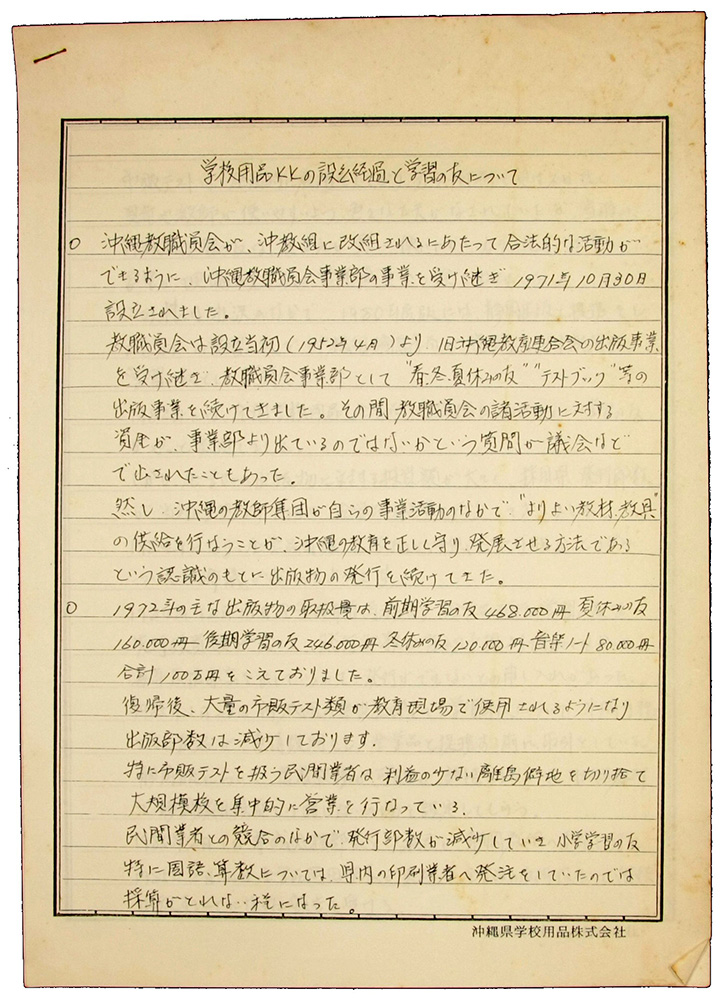 学校用品KKの設立経過と学習の友について
○ 沖縄教職員会が、沖教組に改組されるにあたって合法的な活動が
できるように、沖縄教職員会事業部の事業を受け継ぎ 1971年10月30日
設立されました。
教職員会は設立当初(1952年4月)より、旧沖縄教育連合会の出版事業
を受け継ぎ、教職員会事業部として“春.冬.夏休みの友”“テストブック”等の
出版事業を続けてきました。その間 教職員会の諸活動に対する
資金が、事業部より出ているのではないかという質問が議会など
で出されたこともあった。
然し、沖縄の教師集団が自らの事業活動のなかで、“よりよい教材、教具”
の供給を行なうことが、沖縄の教育を正しく守り、発展させる方法である
という認識のもとに出版物の発行を続けてきた。
○ 1972年の主な出版物の取扱量は、前期学習の友468.000冊 夏休みの友
160.000冊 後期学習の友246.000冊 冬休みの友120.000冊 音楽ノート80.000冊
合計100万冊をこえておりました。
復帰後、大量の市販テスト類が教育現場で使用されるようになり
出版部数は減少しております.
特に市販テストを扱う民間業者は 利益の少ない離島僻地を切り捨て
大規模校を集中的に営業を行なっている.
民間業者との競合のなかで、発行部数が減少していき 小学学習の友
特に国語、算数については、県内の印刷業者へ発注をしていたのでは
採算がとれない様になった。
沖縄県学校用品株式会社